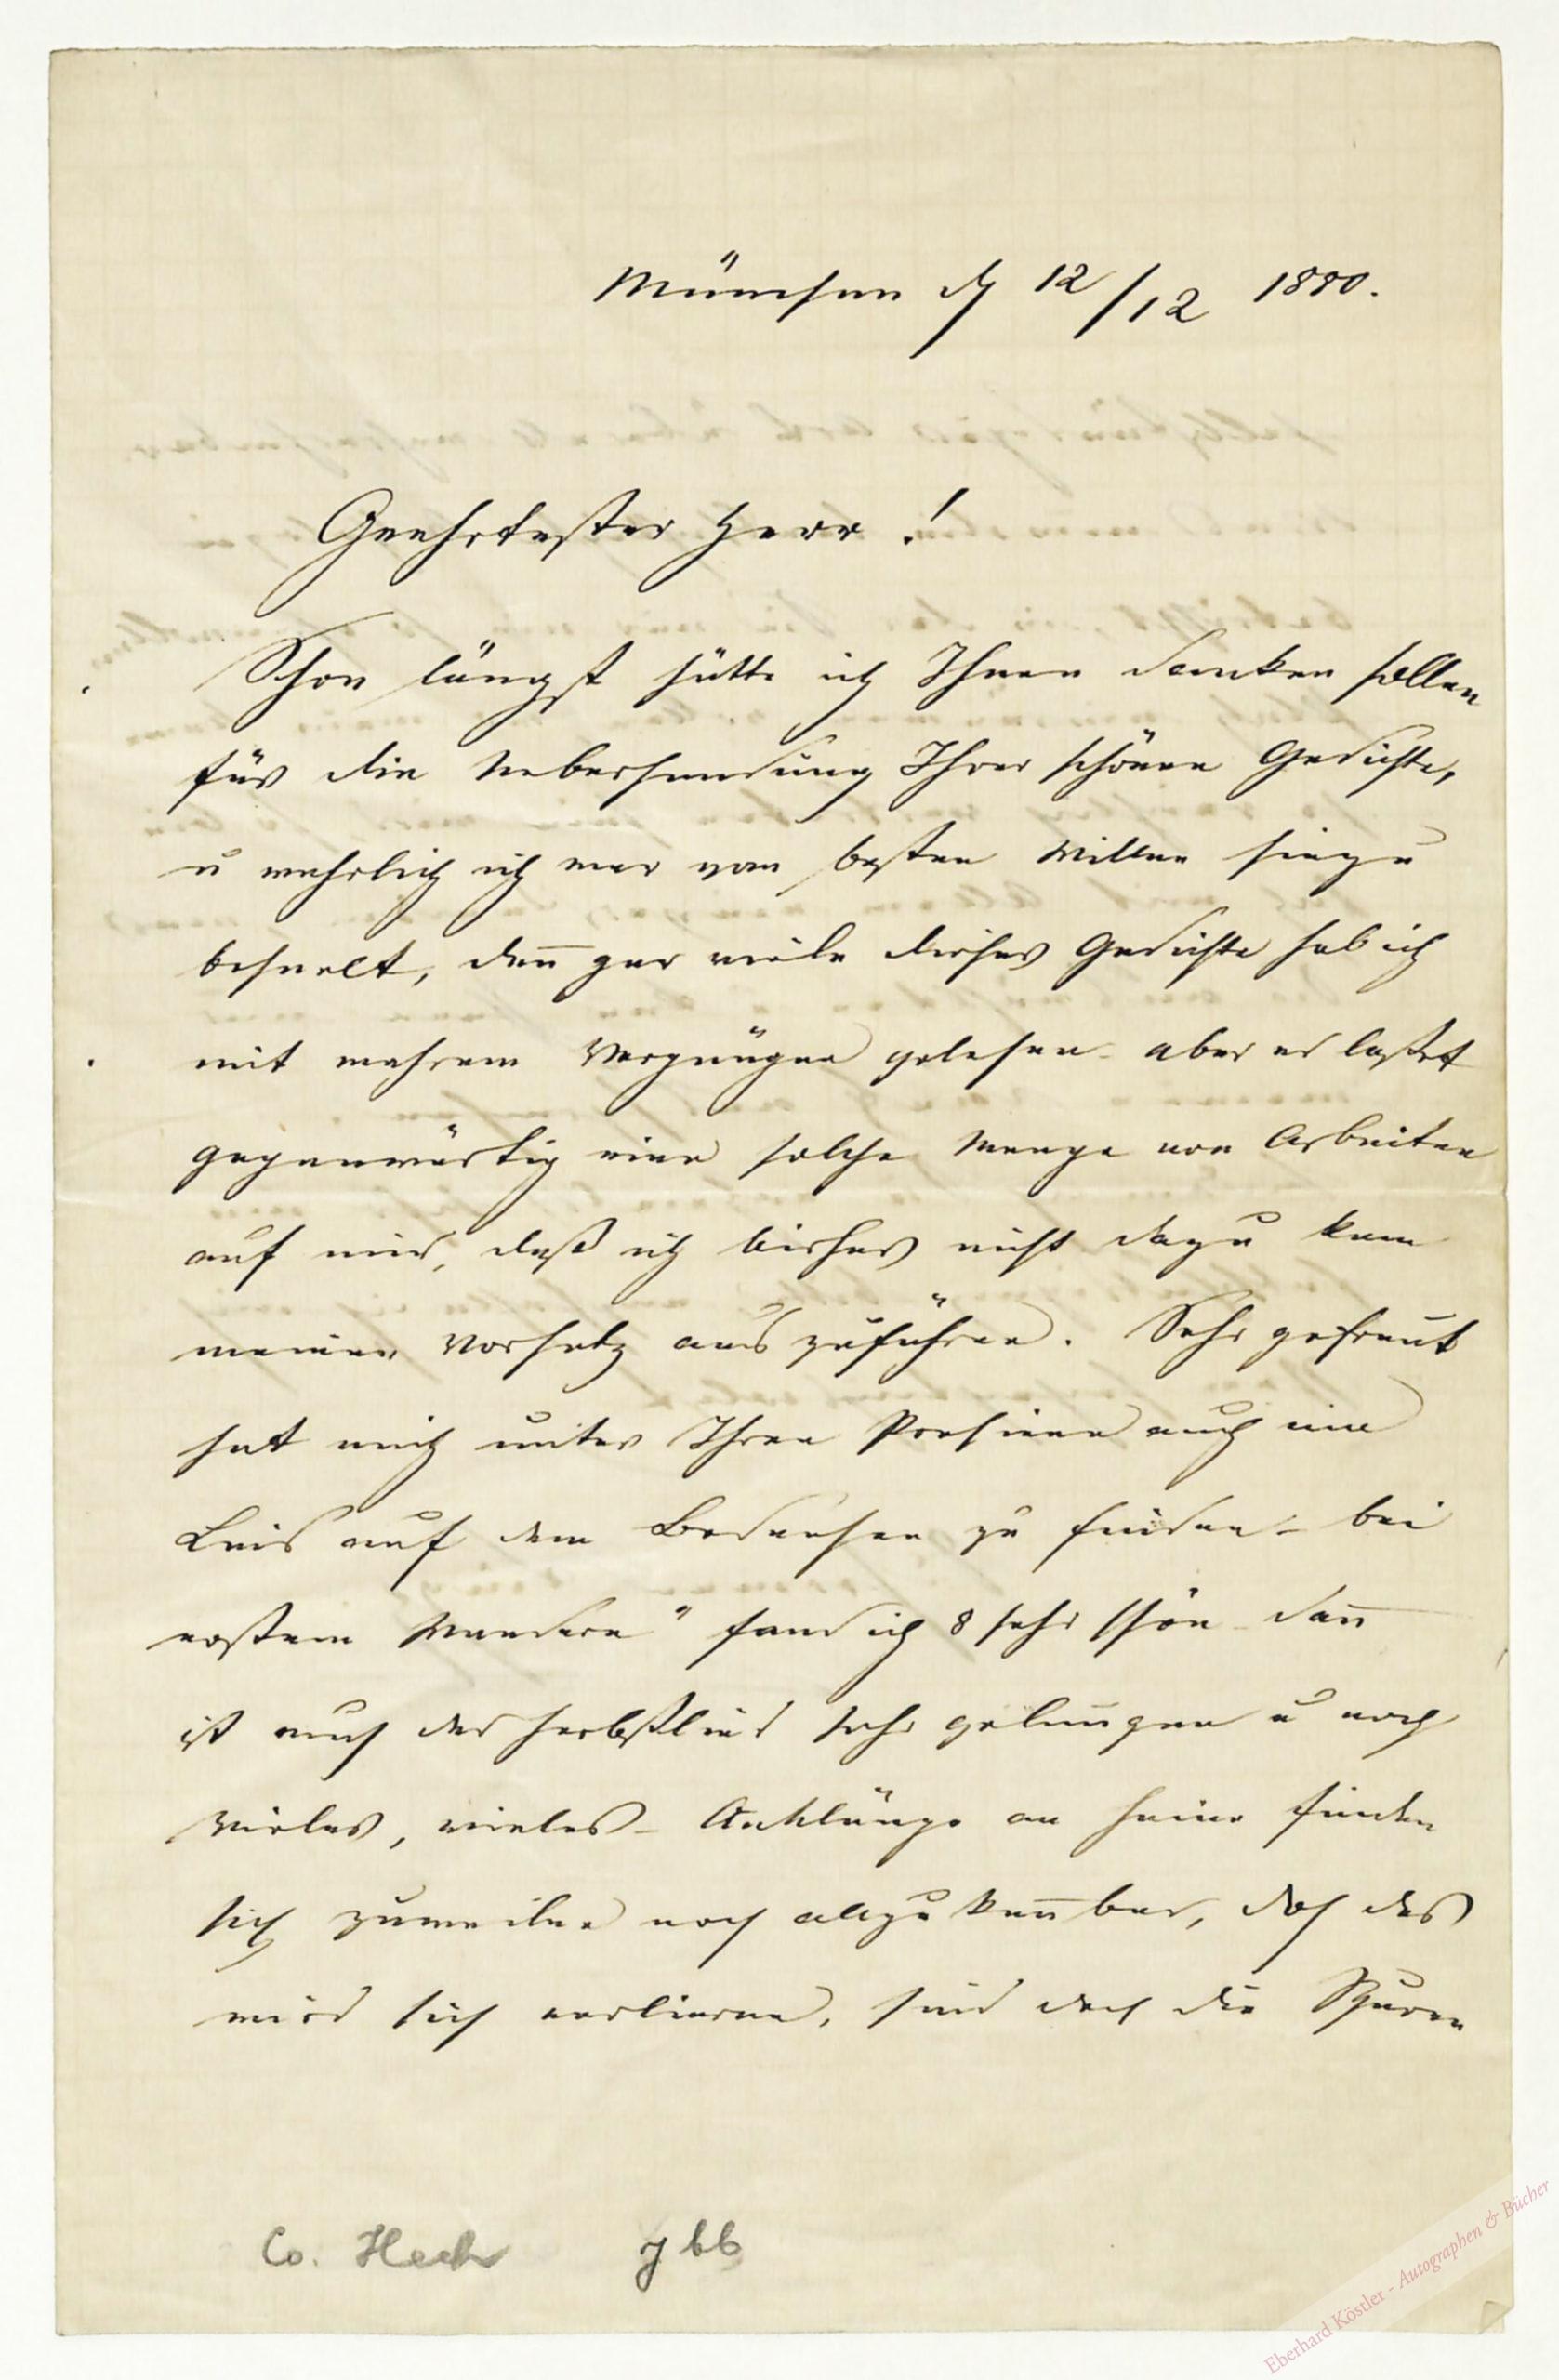 München d 12/12 1880.
Geehrtester Herr!
Schon längst hätte ich Ihnen danken sollen
für die Uebersendung Ihrer schönen Gedichte,
u wahrlich ich war vom besten Willen hiezu
beseelt, den̄ gar viele dieser Gedichte hab ich
mit wahrem Vergnügen gelesen - aber es lastet
gegenwärtig eine solche Menge von Arbeiten
auf mir, daß ich bisher nicht dazu kam
meinen Vorsatz auszuführen. Sehr gefreut
hat mich unter Ihren Poesieen auch eine
Lied auf dem Bodensee zu finden - bei
"fand ich sehr schön - dan̄
ist auch das Herbstlied sehr gelungen u noch
vieles, vieles - Anklänge an Heine finden
sich zuweilen noch allzu ken̄bar, doch das
wird sich verlieren, sind doch die Spuren
Eberhard Köstler - Autographen & Bücher